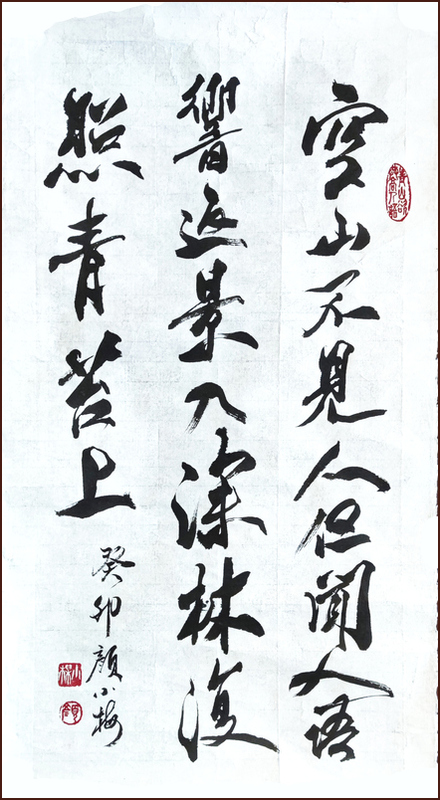 空山不見人但聞人語
響返景入深林復
照青苔上
癸卯顏小梅